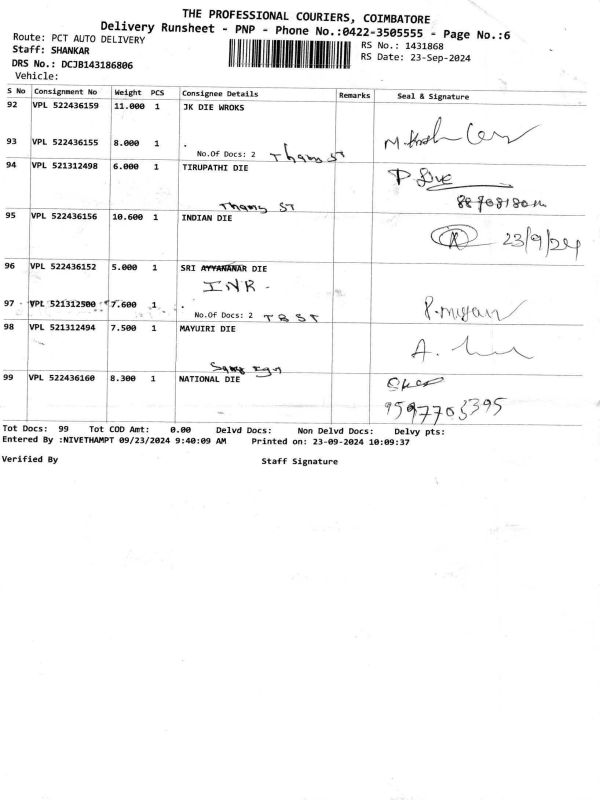 THE PROFESSIONAL COURIERS, COIMBATORE
Delivery Runsheet - PNP - Phone No.:0422-3505555 - Page No.:6
Route: PCT AUTO DELIVERY
RS No.: 1431868
Staff: SHANKAR
RS Date: 23-Sep-2024
DRS No.: DCJB143186806
Vehicle:
S No Consignment No Weight PCS Consignee Details Remarks Seal & Signature
92 VPL 522436159 11.000 1 JK DIE WROKS
93 VPL 522436155 8.000 1 .
No.Of Docs: 2 Thams ST
94 VPL 521312498 6.000 1 TIRUPATHI DIE
Thams ST
95 VPL 522436156 10.600 1 INDIAN DIE
23/9/24
96 VPL 522436152 5.000 1 SRI AYYANANAR DIE
INR
97 VPL 521312500 7.600 1 .
No.Of Docs: 2 TBST
98 VPL 521312494 7.500 1 MAYUIRI DIE
99 VPL 522436160 8.300 1 NATIONAL DIE
9597703395
Tot Docs: 99 Tot COD Amt: 0.00 Delvd Docs: Non Delvd Docs: Delvy pts:
Entered By :NIVETHAMPT 09/23/2024 9:40:09 AM Printed on: 23-09-2024 10:09:37
Verified By Staff Signature